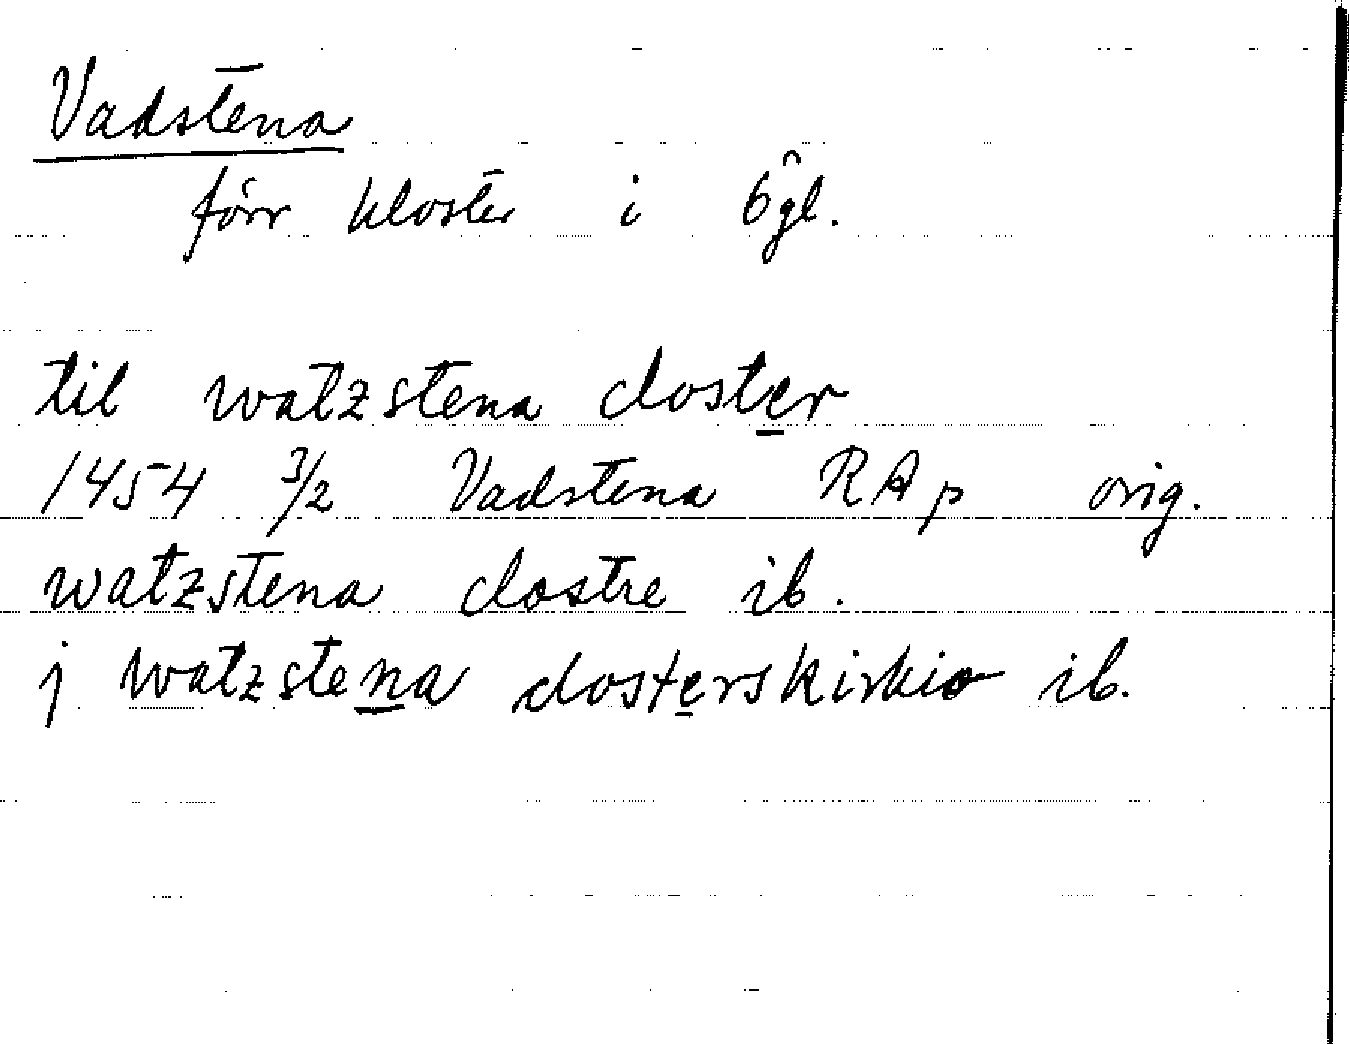 Vadstena
förr kloster i Ögl.
til watzstena closter
1454 3/2 Vadstena RAp orig.
watzstena clostre ib.
j watzstena closterskirkio ib.